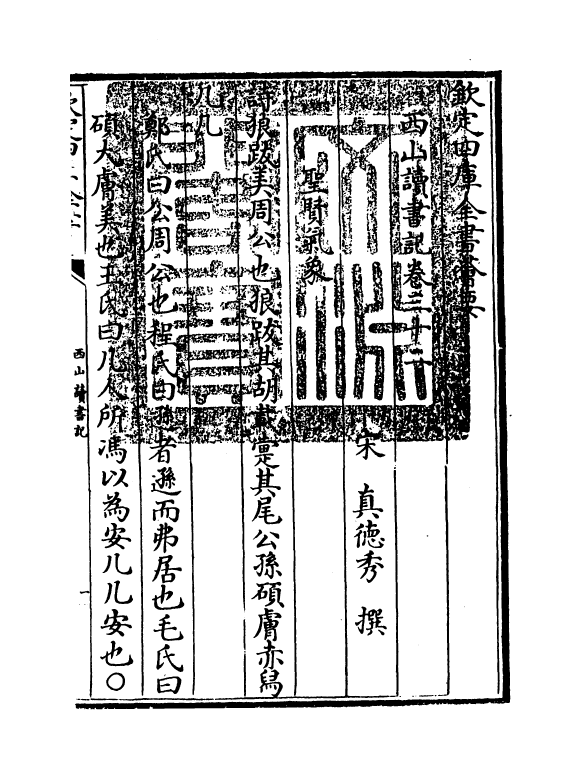 欽定四庫全書薈要
西山讀書記卷三十二
宋 真德秀 撰
聖賢氣象
詩狼跋美周公也狼跋其胡載疐其尾公孫碩膚赤舄
几几
鄭氏曰公周公也程氏曰孫者遜而弗居也毛氏曰
碩大膚美也王氏曰几人所馮以為安几几安也○
西山讀書記
一